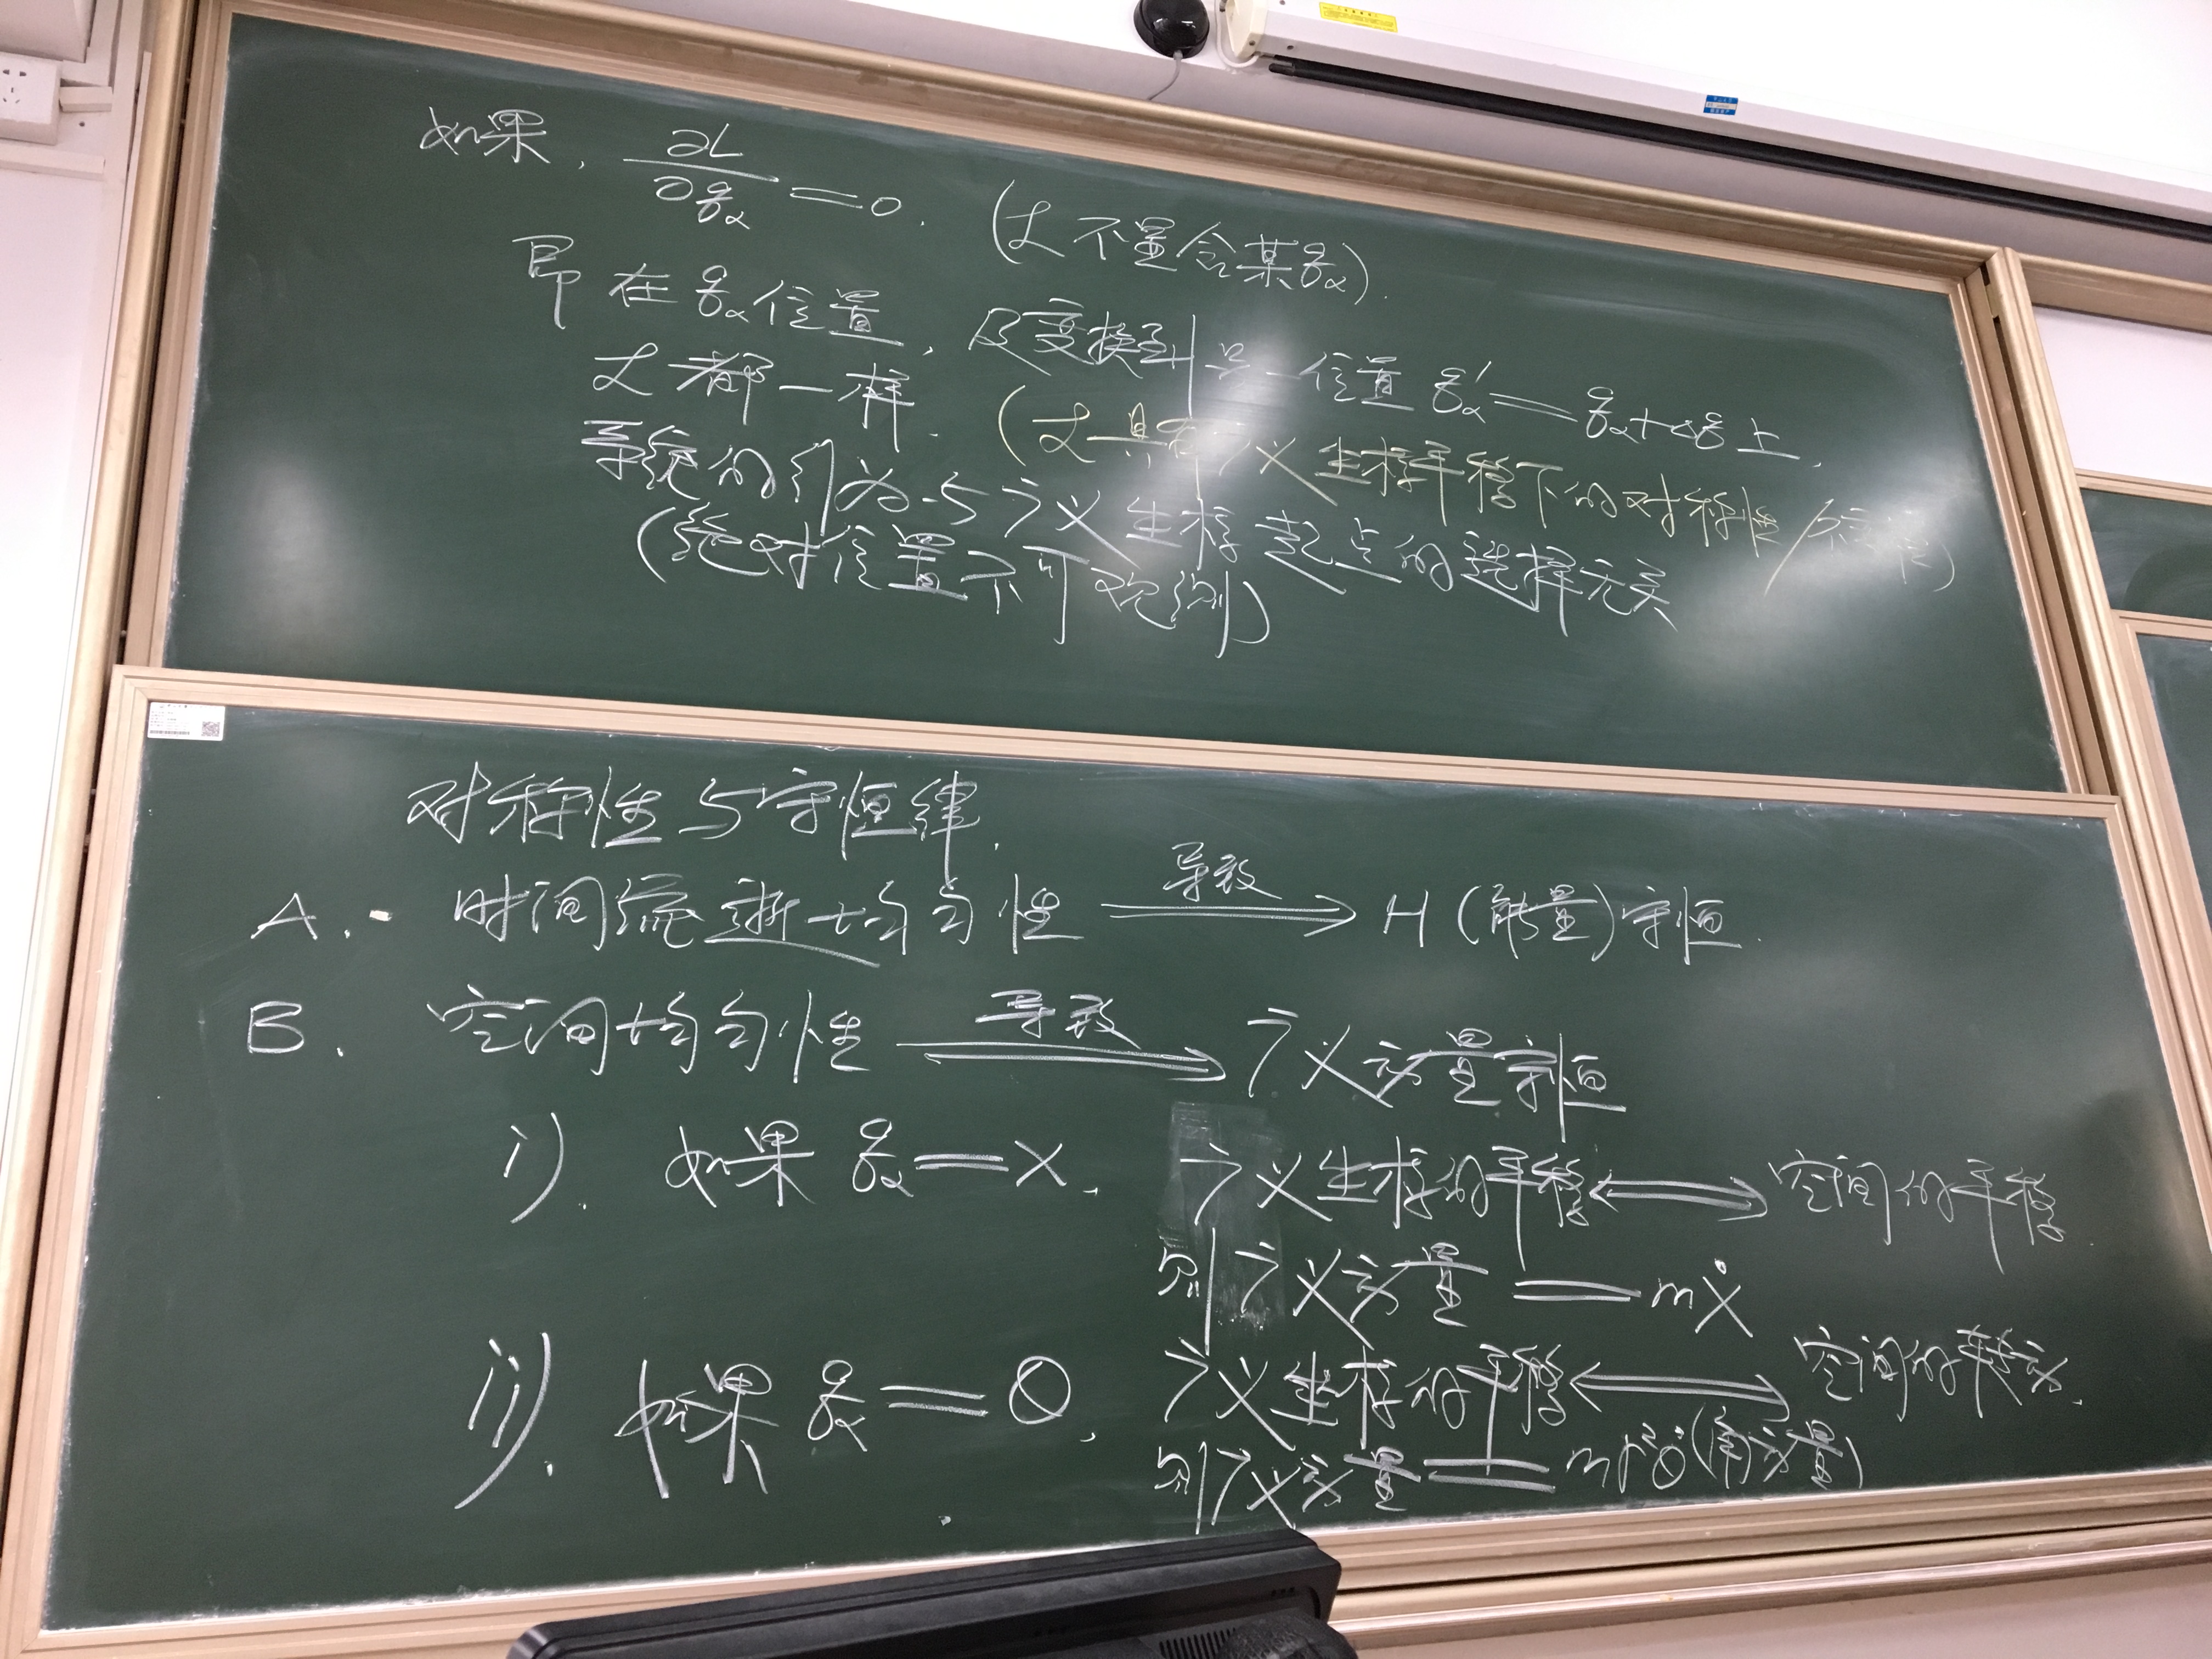 如果, ∂L/∂qα = 0. (L 不显含某qα).
即在 qα 位置, 及变换到另一位置 qα' = qα+Δq 上,
L 都一样. (L 具有广义坐标平移下的对称性/不变性)
系统的行为与广义坐标起点的选择无关
(绝对位置不可观测)
对称性与守恒律.
A. 时间流逝均匀性 导致⟹ H (能量) 守恒.
B. 空间均匀性 导致⟹ 广义动量守恒
i). 如果 qα = x, 广义坐标的平移 ⟺ 空间的平移
则广义动量 = mẋ
ii). 如果 qα = θ, 广义坐标的平移 ⟺ 空间的转动.
则广义动量 = mr²θ̇ (角动量)